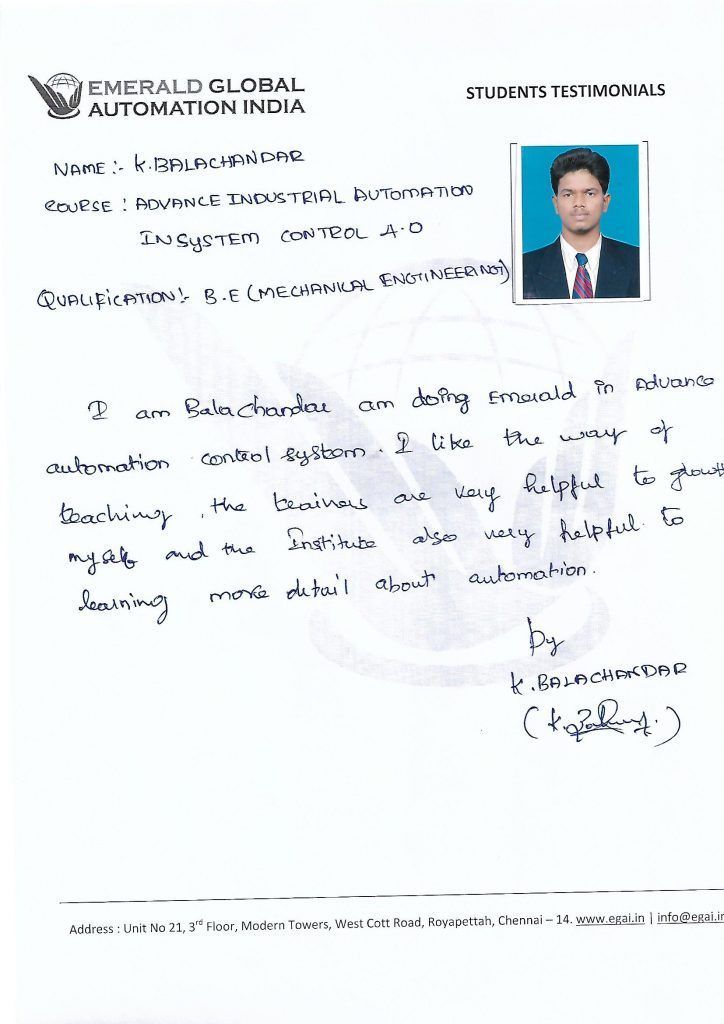 EMERALD GLOBAL
AUTOMATION INDIA
STUDENTS TESTIMONIALS
NAME :- K.BALACHANDAR
COURSE : ADVANCE INDUSTRIAL AUTOMATION
IN SYSTEM CONTROL 4.0
QUALIFICATION :- B.E (MECHANICAL ENGINEERING)
I am Balachandar am doing Emerald in Advance
automation control system. I like the way of
teaching, the trainers are very helpful to growth
myself and the Institute also very helpful to
learning more detail about automation.
by
K.BALACHANDAR
(K.
Address : Unit No 21, 3rd Floor, Modern Towers, West Cott Road, Royapettah, Chennai – 14. www.egai.in | info@egai.in